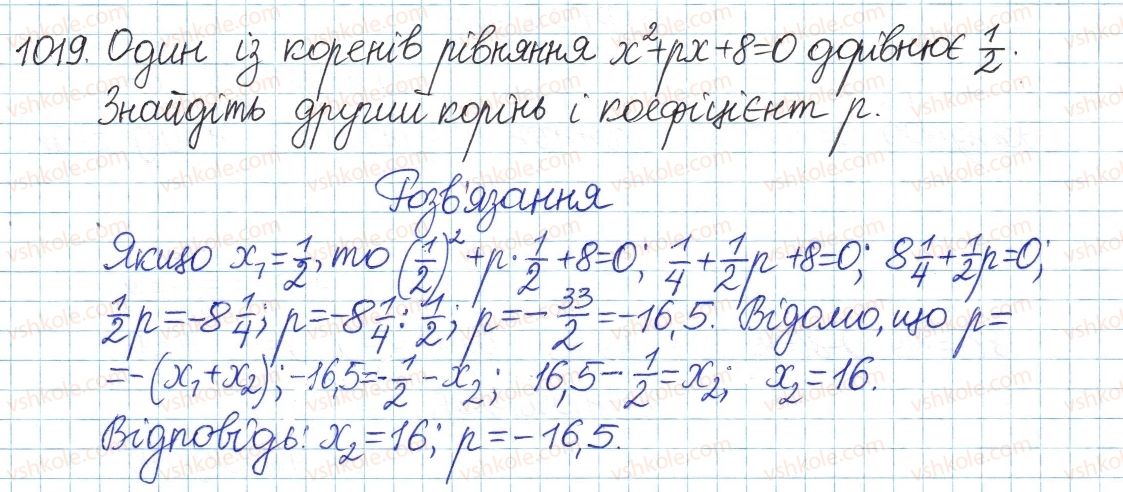 1019. Один із коренів рівняння x²+px+8=0 дорівнює 1/2.
Знайдіть другий корінь і коефіцієнт p.
Розв'язання
Якщо x₁=1/2, то (1/2)²+p·1/2+8=0; 1/4+1/2p+8=0; 8 1/4+1/2p=0;
1/2p=-8 1/4; p=-8 1/4:1/2; p=-33/2=-16,5. Відомо, що p=
=-(x₁+x₂); -16,5=-1/2-x₂; 16,5-1/2=x₂; x₂=16.
Відповідь: x₂=16; p=-16,5.